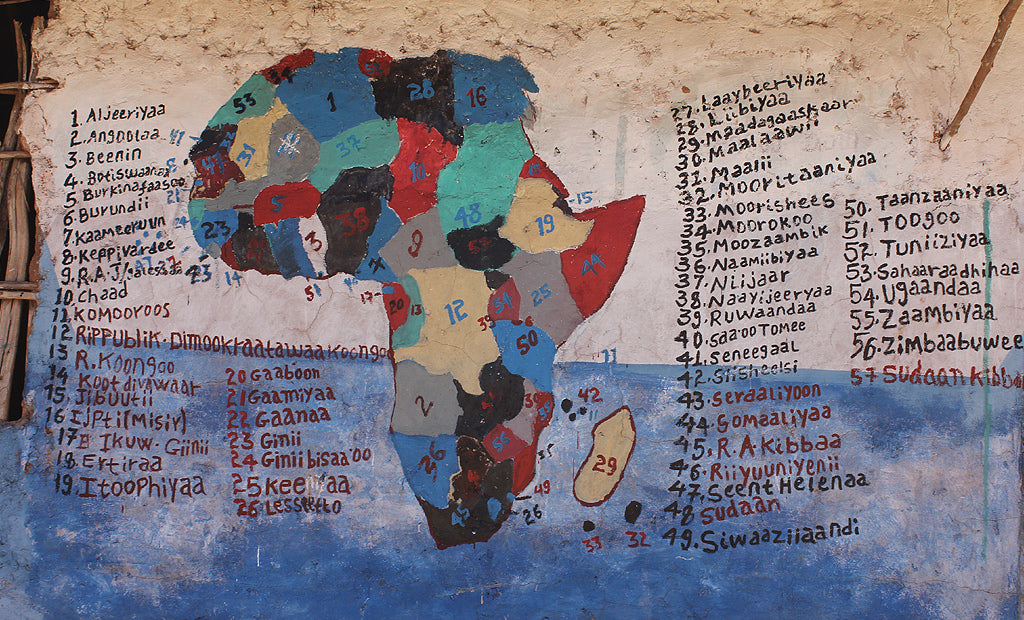 1. Aljeeriyaa
2. Angoolaa
3. Beenin
4. Botiswaanaa
5 Burkinafaasoo
6. Burundii
7. Kaameeruun
8. Keppivardee
9. R.A.J
10 Chaad
11 Komooroos
12 Rippublik. Dimookraatawaa Koongoo
13 R. Koongoo
14 Kootdivawaar
15. Jibuutii
16 Ijpti(Misir)
17 E Ikuw. Giinii
18. Ertiraa
19. Itoophiyaa
20 Gaaboon
21 Gaamiyaa
22 Gaanaa
23 Ginii
24 Ginii bisaa'oo
25 Keeniyaa
26 Lesseetto
27. Laaybeeriyaa
28. Liibiyaa
29. Maadagaaskaar
30. Maalaawii
31. Maalii
32. Mooritaaniyaa
33. Moorishees
34. Moorokoo
35. Moozaambik
36. Naamiibiyaa
37. Niijaar
38. Naayijeeryaa
39. Ruwaandaa
40. saa'oo Tomee
41. Seneegaal
42. Siisheelsi
43. Seraaliyoon
44. Somaaliyaa
45. R.A.Kibbaa
46. Riiyuuniyenii
47. Seent Helenaa
48 Sudaan
49. Siwaaziiaandi
50. Taanzaaniyaa
51. Toogoo
52. Tuniiziyaa
53. Sahaaraadhihaa
54. Ugaandaa
55. Zaambiyaa
56. Zimbaabuwee
57 Sudaan Kibbaa
53
1
28
16
37
31
48
19
15
44
5
38
3
23
14
51
12
13
20
17
25
50
2
42
11
29
49
26
33
32